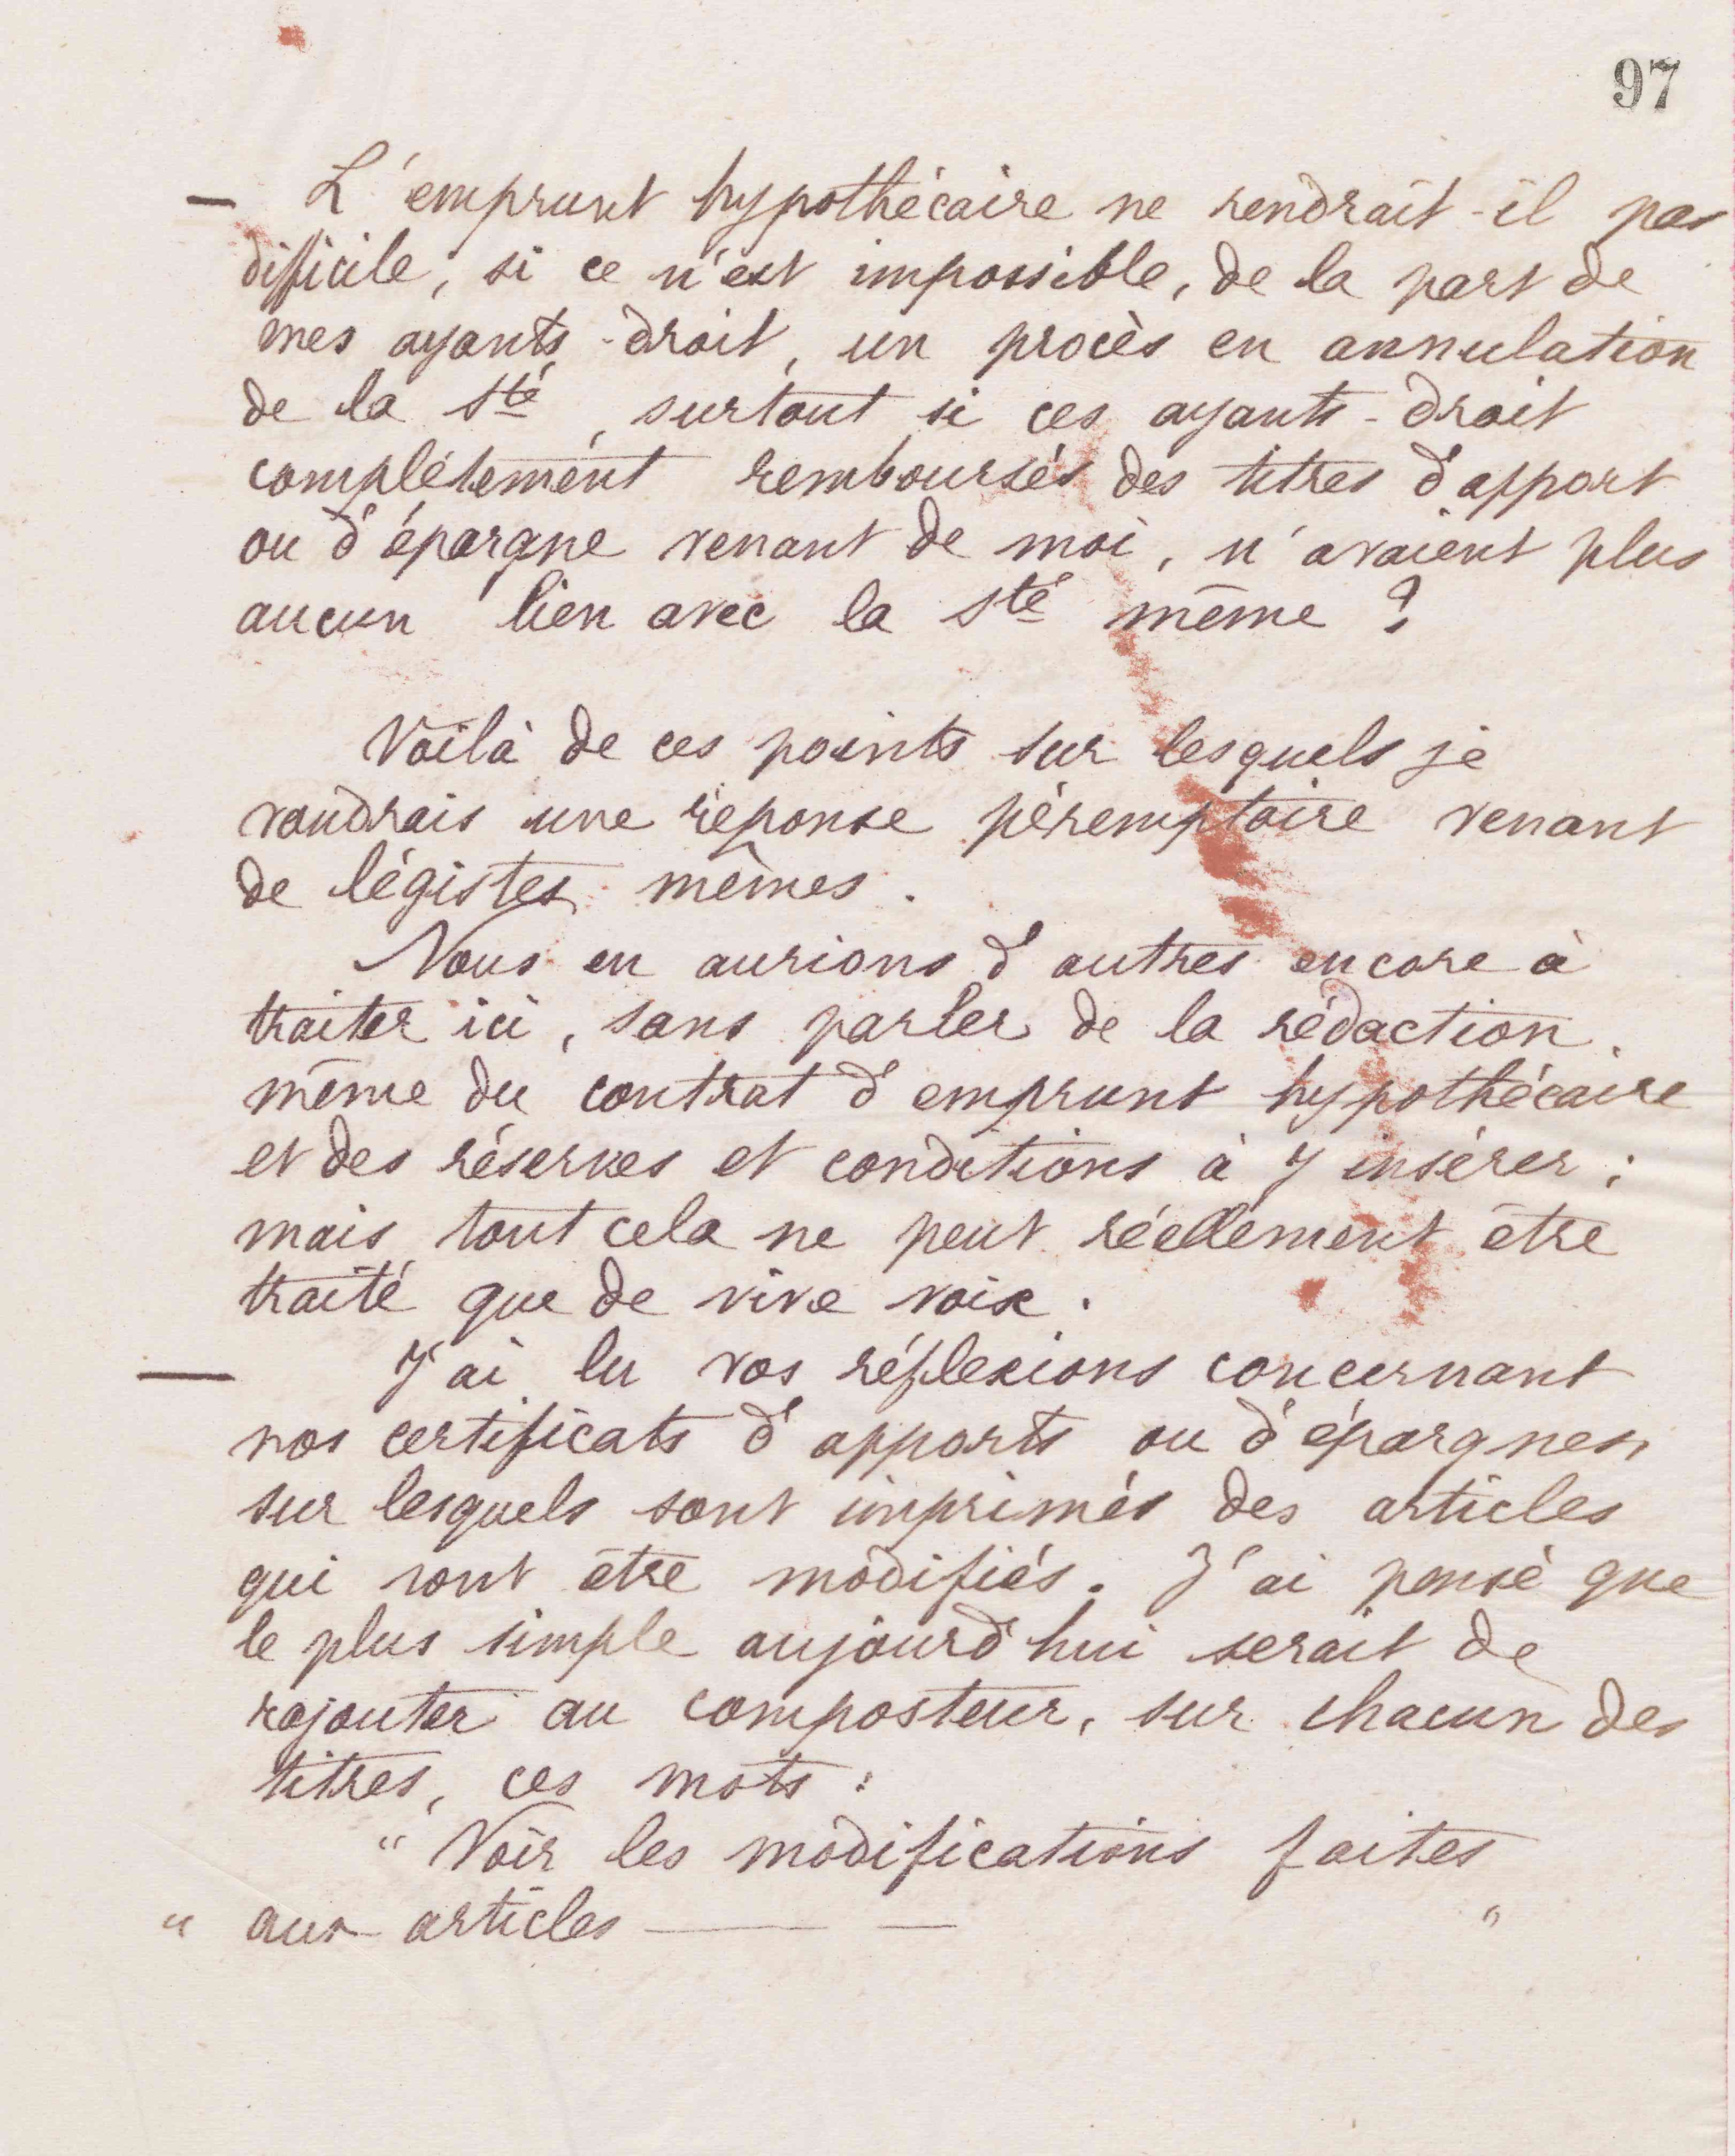 97
— L'emprunt hypothécaire ne rendrait-il pas
difficile, si ce n'est impossible, de la part de
mes ayants-droit, un procès en annulation
de la Sté, surtout si ces ayants-droit
complètement remboursés des titres d'apport
ou d'épargne venant de moi, n'avaient plus
aucun lien avec la Sté même ?
Voilà de ces points sur lesquels je
voudrais une réponse péremptoire venant
de légistes mêmes.
Nous en aurions d'autres encore à
traiter ici, sans parler de la rédaction
même du contrat d'emprunt hypothécaire
et des réserves et conditions à y insérer ;
mais tout cela ne peut réellement être
traité que de vive voix.
— J'ai lu vos réflexions concernant
nos certificats d'apports ou d'épargnes,
sur lesquels sont imprimés des articles
qui vont être modifiés. J'ai pensé que
le plus simple aujourd'hui serait de
rajouter au composteur, sur chacun des
titres, ces mots :
" Voir les modifications faites
" aux articles ——— — "